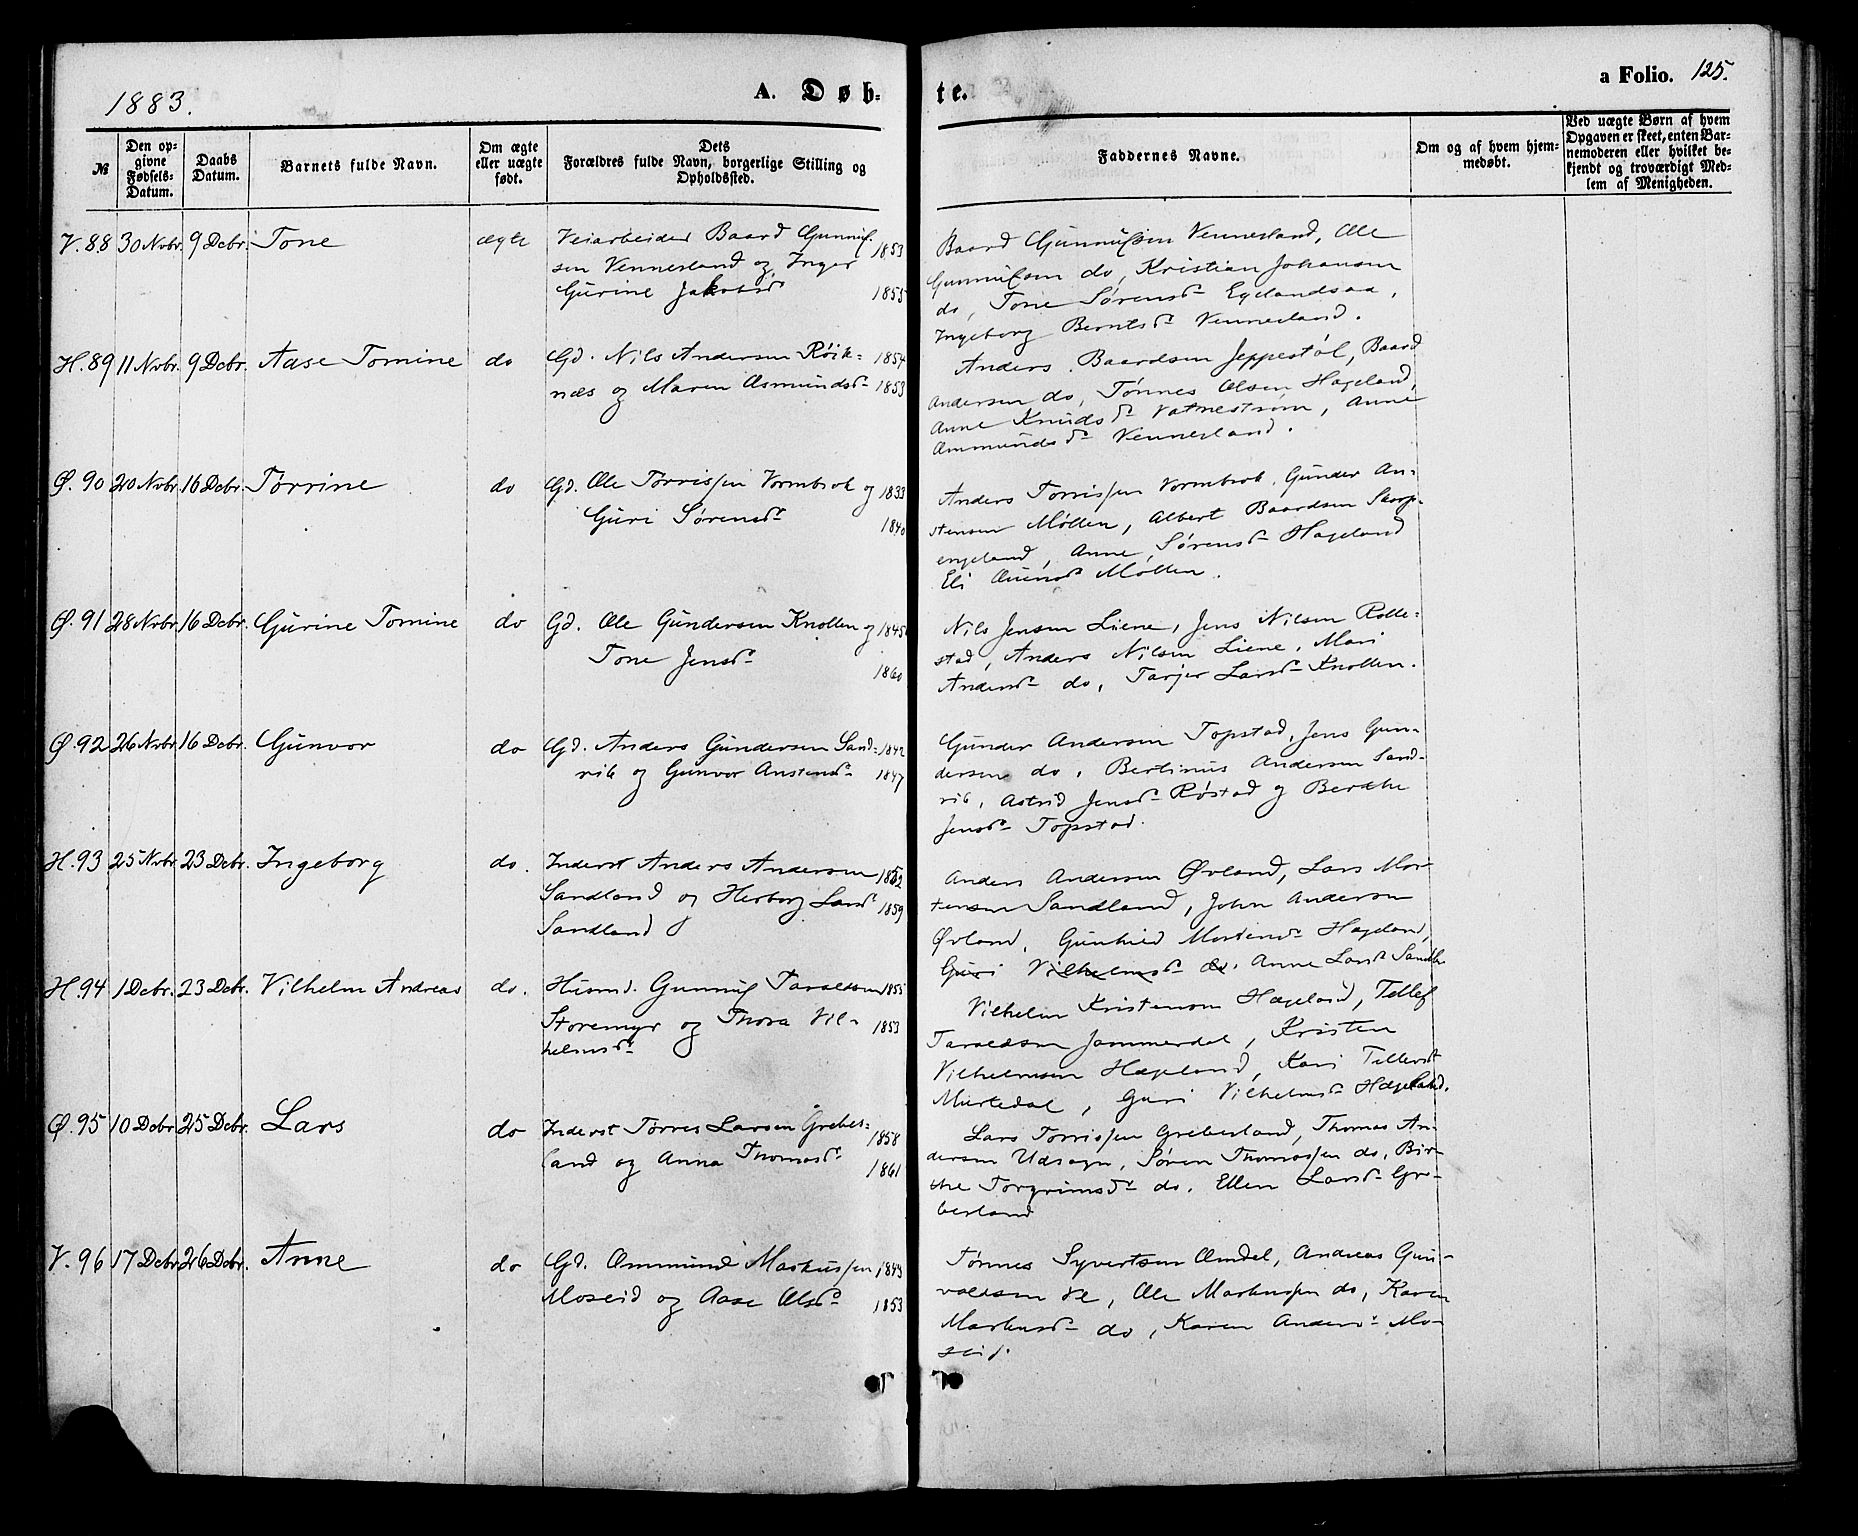 1883.
A. Døb-
te.
a Folio. 125.
№
Den op-
givne
Fødsels-
Datum.
Daabs
Datum.
Barnets fulde Navn.
Om ægte
eller uægte
født.
Dets
Forældres fulde Navn, borgerlige Stilling og
Opholdssted.
Faddernes Navne.
Om og af hvem hjem-
medøbt.
Ved uægte Børn af hvem
Opgaven er skeet, enten Bar-
nemoderen eller hvilket be-
kjendt og troværdigt Med-
lem af Menigheden.
V. 88 30 Nvbr. 9 Dcbr. Tone ægte
Veiarbeider Baard Gunnuf- 1853
sen Vennesland og Inger
Gurine Jakobsd 1855
Baard Gunnufsen Vennesland, Ole
Gunnufsen do, Kristian Johansen
do, Tone Sørensd Egelandsaa,
Ingeborg Berntsd Vennesland.
H. 89 11 Nvbr. 9 Dcbr. Aase Tomine do
Gd. Nils Andersen Røik- 1854
næs og Maren Asmundsd 1853
Anders Baardsen Jeppestøl, Baard
Andersen do, Tønnes Olsen Hageland,
Anne Knudsd Vatnestrøm, Anne
Ommundsd Vennesland.
Ø. 90 20 Nvbr. 16 Dcbr. Torrine do
Gd. Ole Torrissen Vormbrok og 1833
Guri Sørensd 1840
Anders Torrissen Vormbrok, Gunder An-
stensen Møllen, Albert Baardsen Skarp-
engeland, Anne Sørensd Hageland
Eli Møllen.
Ø. 91 28 Nvbr. 16 Dcbr. Gurine Tomine do
Gd. Ole Gundersen Knollen og 1845
Tone Jensd 1860
Nils Jensen Liene, Jens Nilsen Rolle-
stad, Anders Nilsen Liene, Mari
Andersd do, Tarjer Larsd Knollen.
Ø. 92 26 Nvbr. 16 Dcbr. Gunvor do
Gd. Anders Gundersen Sand- 1842
vik og Gunvor Anstensd 1847
Gunder Andersen Topstad, Jens Gun-
dersen do, Bertinius Andersen Sand-
vik, Astrid Jensd Røstad og Berthe
Jensd Topstad.
H. 93 25 Nvbr. 23 Dcbr. Ingeborg do.
Inderst Anders Andersen 1852
Sandland og Herborg Larsd 1859
Sandland
Anders Andersen Øvland, Lars Mor-
tensen Sandland, John Andersen
Øvland, Gunhild Mortensd Hageland,
Guri Vilhelmsd do. Anne Larsd Sandl.
H. 94 1 Dcbr. 23 Dcbr. Vilhelm Andreas do.
Husmd. Gunnuf Taraldsen 1855
Storemyr og Thora Vil- 1853
helmsd
Vilhelm Kristensen Hægeland, Tellef
Taraldsen Jammerdal, Kristen
Vilhelmsen Hægeland, Kari Tellefsd
Murtedal, Guri Vilhelmsd Hægeland.
Ø. 95 10 Dcbr. 25 Dcbr. Lars do
Inderst Tørres Larsen Grebes- 1858
land og Anna Thomasd 1861
Lars Torrissen Greberland, Thomas An-
dersen Udsogn, Søren Thomassen do, Bir-
the Torgrimsd do. Ellen Larsd Gre-
besland
V. 96 17 Dcbr. 26 Dcbr. Anne do
Gd. Ommund Markussen 1849
Moseid og Aase Olsd 1853
Tønnes Syvertsen Omdal, Andreas Gun-
valdsen do, Ole Markussen do, Karen
Markusd do, Karen Andersd Mo-
seid.